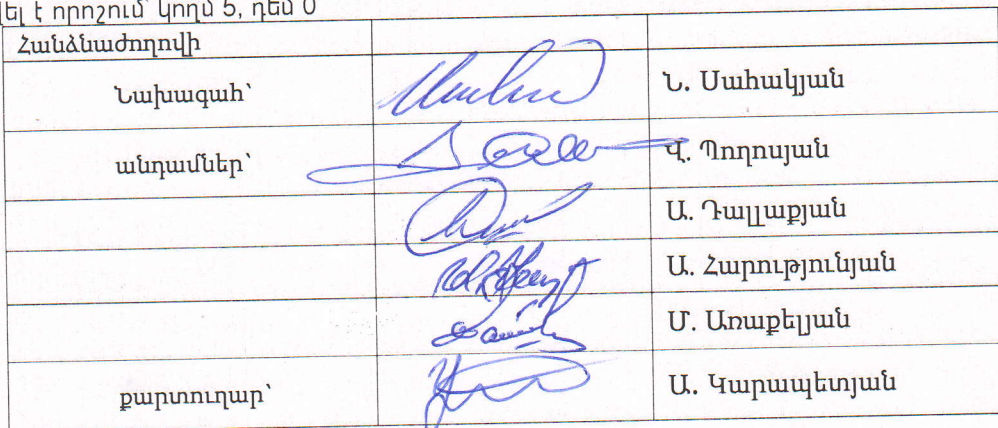 է որոշում կողմ 5, դեմ 0
Հանձնաժողովի
Նախագահ՝ Ն. Սահակյան
անդամներ՝ Վ. Պողոսյան
Ա. Դալլաքյան
Ա. Հարությունյան
Մ. Առաքելյան
քարտուղար՝ Ա. Կարապետյան